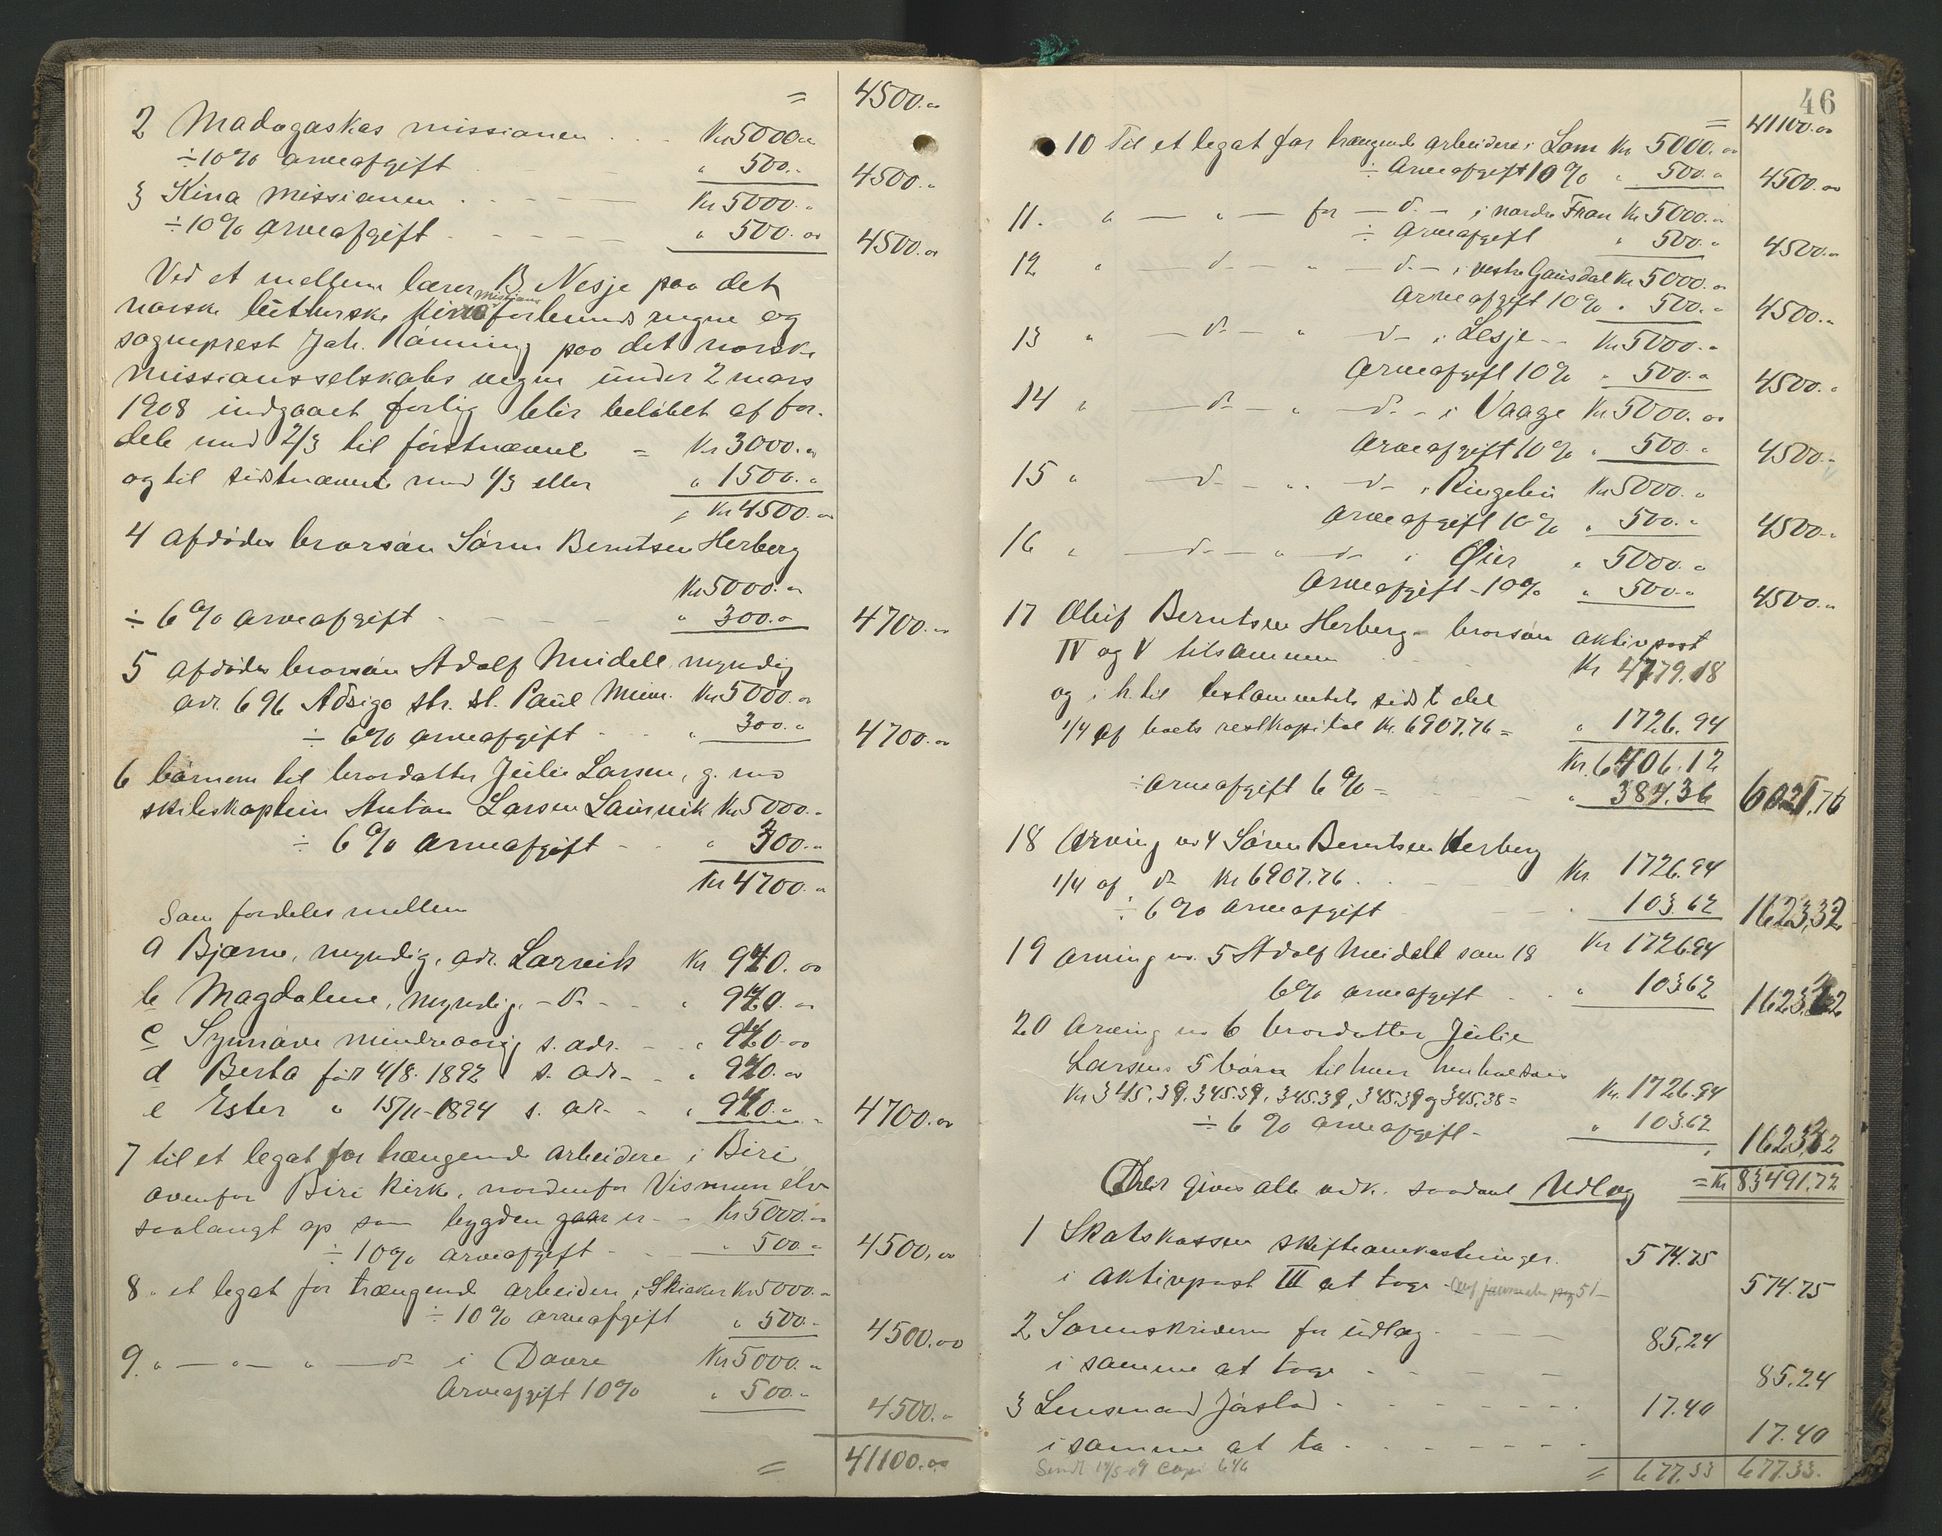 = 4500.00
2 Madagaskas missionen . . Kr 5000.00
÷ 10% arveafgift - - " 500.- 4500.-
3 Kina missionen . - - - Kr 5000.-
÷ 10% arveafgift - - - " 500.00 4500.00
Ved et mellem lærer B Nesje paa det
norske lutherske missions forbunds vegne og
sogneprest Joh. Rønning paa det norske
missionsselskabs vegne under 2 mars
1908 indgaaet forlig blir beløbet at for-
dele med 2/3 til førstnævnte = Kr 3000.00
og til sidstnævnte med 1/3 eller " 1500.-
Kr 4500.00
4 afdødes brorsøn Søren Berntsen Herberg
Kr 5000.-
÷ 6% arveafgift - - - " 300.- 4700.-
5 afdødes brorsøn Adolf Meidell, myndig
adr. 696 str. St. Paul Minn. Kr 5000.00
÷ 6% arveafgift - - " 300.- 4700.00
6 børnene til brordatter Julie Larsen, g. m.
skibskaptein Anton Larsen Laurvik Kr 5000.-
÷ 6% arveafgift - - " 300.-
Kr 4700.-
Som fordeles mellem
a Bjarne, myndig, adr. Larvik Kr. 940.00
b Magdalene, myndig, - d - - " 940.-
c Synnøve mindreaarig s. adr. - " 940.00
d Berta født 4/8 1892 s. adr - - " 940.00
e Ester " 15/11-1894 s. adr. - " 940.- 4700.00
7 til et legat for trængende arbeidere i Biri
ovenfor Biri kirke, nordenfor Vismun elv
saalangt op som bygden gaar er - - Kr 5000.-
÷ 10% arveafgift - - " 500.- 4500.00
8 " et legat for trængende arbeidere i Skiaker Kr 5000.-
÷ 10% arveafgift " 500.- 4500.00
9. " — " — " — d - i Dovre Kr 5000.-
Arveafgift 10% " 500.- 4500.-
= 41100.00
46
= 41100.00
10 Til et legat for trængende arbeidere i Lom Kr 5000.00
÷ Arveafgift 10% " 500.- 4500.00
11. " — " — for — d. - i nordre Fron Kr 5000.-
÷ Arveafgift " 500.- 4500.-
12 " — d. — " — d. - i vestre Gausdal Kr 5000.-
Arveafgift 10% " 500.- 4500.-
13 " — d - " d - i Lesje - - Kr 5000.-
Arveafgift 10% " 500.- 4500.-
14 " — d - " — d. - i Vaage Kr 5000.00
Arveafgift 10% " 500.- 4500.-
15 " — d - " d - i Ringebu Kr 5000.-
Arveafgift 10% " 500.- 4500.-
16 " — d - " — d - i Øier " 5000.-
Arveafgift - 10% " 500.- 4500.-
17 Oluf Berntsen Herberg - brorsøn aktivpost
IV og V tilsammen - - Kr 4679.18
og i h. til testamentets sidste del
1/4 af boets restkapital Kr. 6907,76 = " 1726.94
Kr. 6406.12
÷ Arveafgift 6% = - - " 384.36 6021,76
18 Arving no 4 Søren Berntsen Herberg
1/4 af d Kr 6907.76 . - - Kr. 1726.94
÷ 6% arveafgift - - 103.62 1623,32
19 Arving no. 5 Adolf Meidell som 18 Kr 1726.94
6% arveafgift - - " 103.62 1623,32
20 Arving no 6 brordatter Julie
Larsens 5 børn til hver henholdsvis
Kr 345.39, 345.39, 345.39, 345.39 og 345.38 = Kr. 1726.94
÷ 6% arveafgift - " 103.62 1623,32
Der gives alle vedk. saadant Udlæg = Kr 83491.72
1 Skatskassen skifteomkostninger. 574.75
i aktivpost III at tage - 574.75
2 Sorenskriveren for udlæg - - - 85.24
i samme at tage - - - - 85.24
3 Lensmand Jørstad - - - - 17.40
i samme at ta - - - - - 17.40
Sendt 14/5 09 Copi 646
= 677.33 677.33.